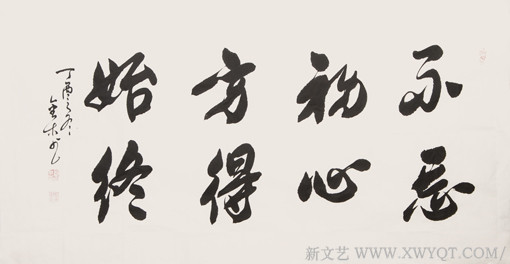 不忘
初心
方得
始终
丁酉之冬
新文艺 WWW.XWYQT.COM/